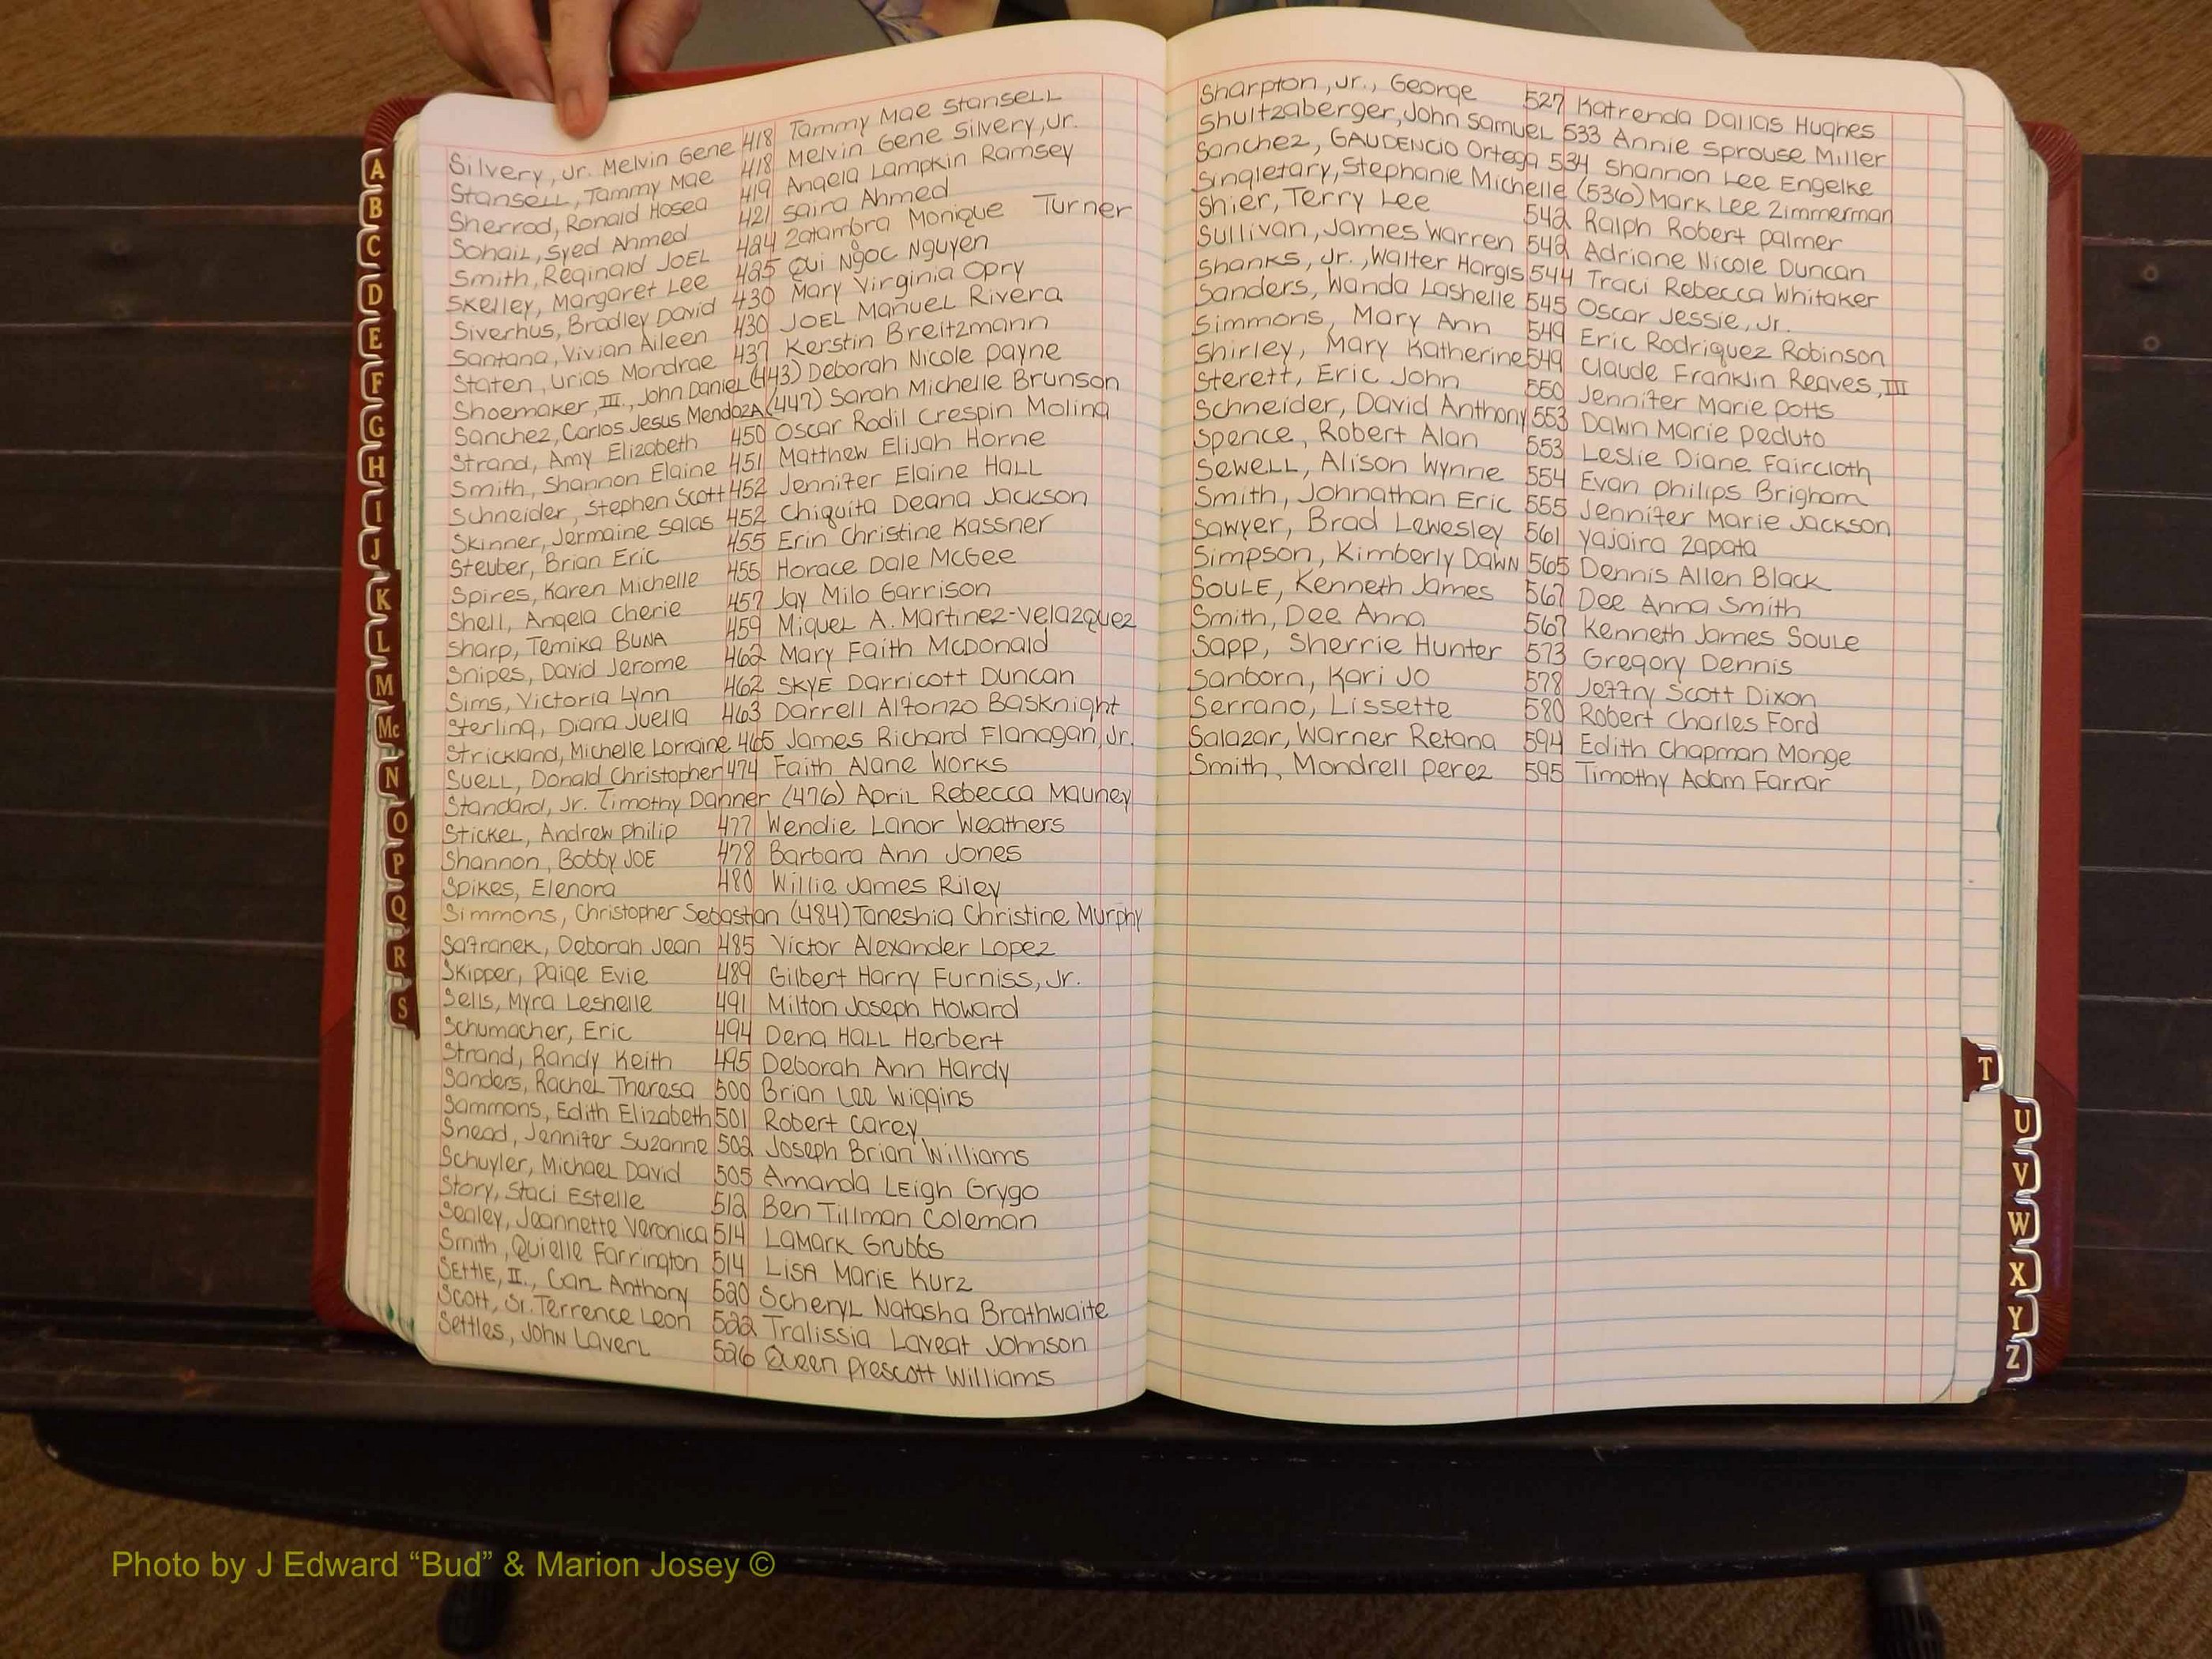 Silvery, Jr. Melvin Gene 418 Tammy Mae Stansell
Stansell, Tammy Mae 418 Melvin Gene Silvery, Jr.
Sherrod, Ronald Hosea 419 Angela Lampkin Ramsey
Sohail, Syed Ahmed 421 Saira Ahmed
Smith, Reginald Joel 424 Zatambra Monique Turner
Skelley, Margaret Lee 425 Qui Ngoc Nguyen
Siverhus, Bradley David 430 Mary Virginia Opry
Santana, Vivian Aileen 430 Joel Manuel Rivera
Staten, Urias Mondrae 437 Kerstin Breitzmann
Shoemaker, III., John Daniel (443) Deborah Nicole Payne
Sanchez, Carlos Jesus Mendoza (447) Sarah Michelle Brunson
Strand, Amy Elizabeth 450 Oscar Rodil Crespin Molina
Smith, Shannon Elaine 451 Matthew Elijah Horne
Schneider, Stephen Scott 452 Jennifer Elaine Hall
Skinner, Jermaine Salas 452 Chiquita Deana Jackson
Steuber, Brian Eric 455 Erin Christine Kassner
Spires, Karen Michelle 455 Horace Dale McGee
Shell, Angela Cherie 457 Jay Milo Garrison
Sharp, Temika Buna 459 Miguel A. Martinez-Velazquez
Snipes, David Jerome 462 Mary Faith McDonald
Sims, Victoria Lynn 462 Skye Darricott Duncan
Sterling, Diana Juella 463 Darrell Alfonzo Basknight
Strickland, Michelle Lorraine 465 James Richard Flanagan, Jr.
Suell, Donald Christopher 474 Faith Alane Works
Standard, Jr. Timothy Danner (476) April Rebecca Mauney
Stickel, Andrew Philip 477 Wendie Lanor Weathers
Shannon, Bobby Joe 478 Barbara Ann Jones
Spikes, Elenora 480 Willie James Riley
Simmons, Christopher Sebastian (484) Taneshia Christine Murphy
Safranek, Deborah Jean 485 Victor Alexander Lopez
Skipper, Paige Evie 489 Gilbert Harry Furniss, Jr.
Sells, Myra Leshelle 491 Milton Joseph Howard
Schumacher, Eric 494 Dena Hall Herbert
Strand, Randy Keith 495 Deborah Ann Hardy
Sanders, Rachel Theresa 500 Brian Lee Wiggins
Sammons, Edith Elizabeth 501 Robert Carey
Snead, Jennifer Suzanne 502 Joseph Brian Williams
Schuyler, Michael David 505 Amanda Leigh Grygo
Story, Staci Estelle 512 Ben Tillman Coleman
Sealey, Jeannette Veronica 514 LaMark Grubbs
Smith, Quielle Farrington 514 Lisa Marie Kurz
Settle, II., Carl Anthony 520 Scheryl Natasha Brathwaite
Scott, Sr. Terrence Leon 522 Tralissia Laveat Johnson
Settles, John Laverl 526 Queen Prescott Williams
Sharpton, Jr., George 527 Katrenda Dallas Hughes
Shultzaberger, John Samuel 533 Annie Sprouse Miller
Sanchez, Gaudencio Ortega 534 Shannon Lee Engelke
Singletary, Stephanie Michelle (536) Mark Lee Zimmerman
Shier, Terry Lee 542 Ralph Robert Palmer
Sullivan, James Warren 542 Adriane Nicole Duncan
Shanks, Jr., Walter Hargis 544 Traci Rebecca Whitaker
Sanders, Wanda Lashelle 545 Oscar Jessie, Jr.
Simmons, Mary Ann 549 Eric Rodriquez Robinson
Shirley, Mary Katherine 549 Claude Franklin Reaves, III
Sterett, Eric John 550 Jennifer Marie Potts
Schneider, David Anthony 553 Dawn Marie Peduto
Spence, Robert Alan 553 Leslie Diane Faircloth
Sewell, Alison Wynne 554 Evan Philips Brigham
Smith, Johnathan Eric 555 Jennifer Marie Jackson
Sawyer, Brad Lewesley 561 Yajaira Zapata
Simpson, Kimberly Dawn 565 Dennis Allen Black
Soule, Kenneth James 567 Dee Anna Smith
Smith, Dee Anna 567 Kenneth James Soule
Sapp, Sherrie Hunter 573 Gregory Dennis
Sanborn, Kari Jo 578 Jeffry Scott Dixon
Serrano, Lissette 580 Robert Charles Ford
Salazar, Warner Retana 594 Edith Chapman Monge
Smith, Mondrell Perez 595 Timothy Adam Farrar
A
B
C
D
E
F
G
H
I
J
K
L
M
Mc
N
O
P
Q
R
S
T
U
V
W
X
Y
Z
Photo by J Edward “Bud” & Marion Josey ©